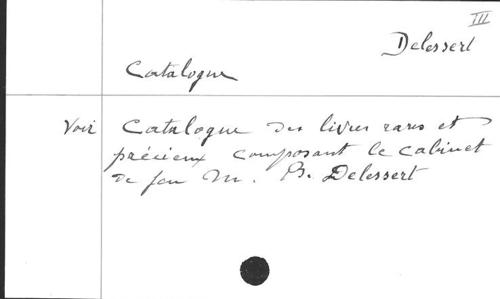 III
Delessert
Catalogue
Voir Catalogue des livres rares et
précieux composant le cabinet
de feu M. B. Delessert